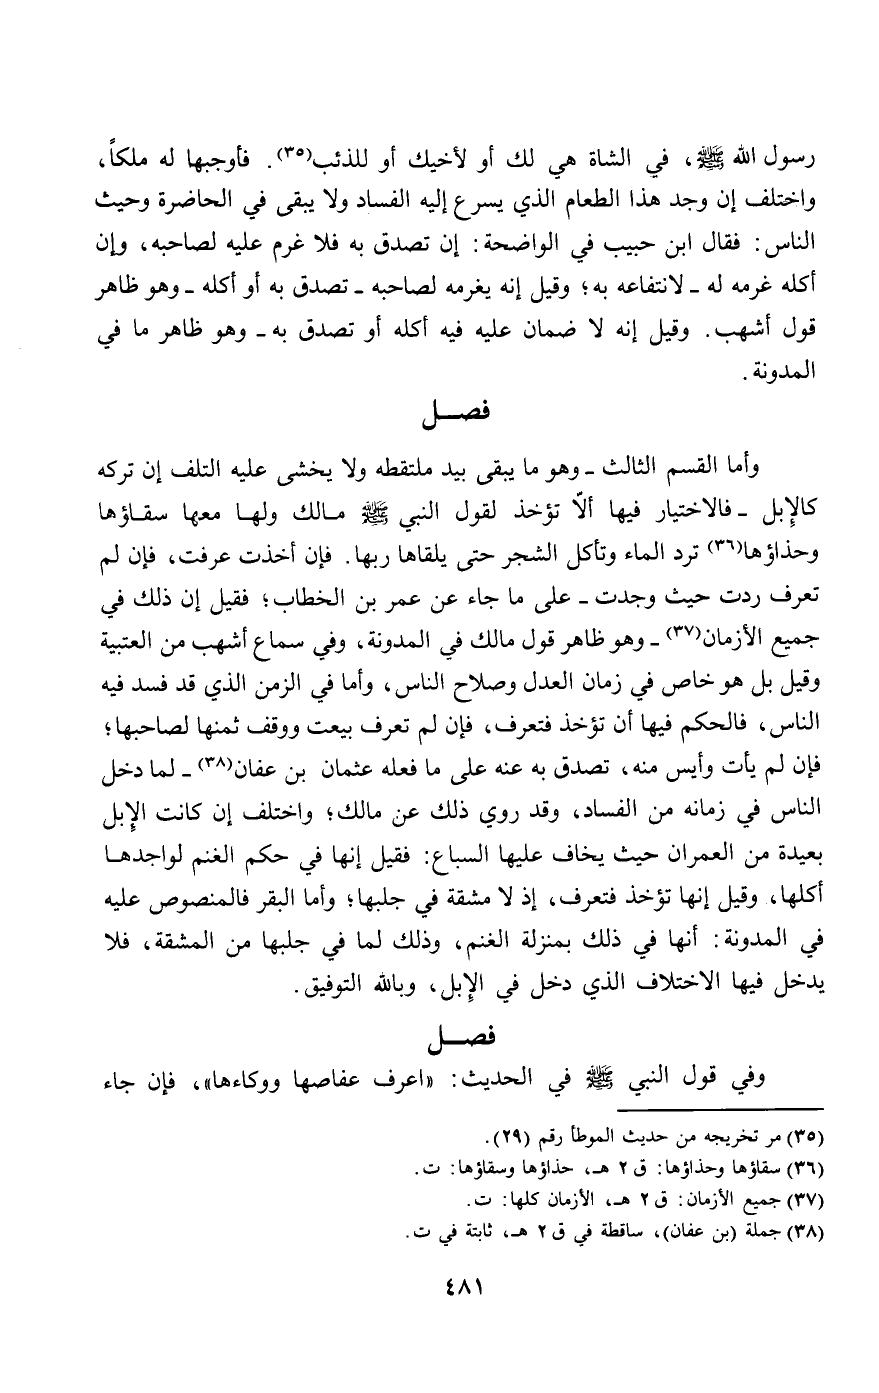 رسول الله ﷺ، في الشاة هي لك أو لأخيك أو للذئب(٣٥). فأوجبها له ملكاً،
واختلف إن وجد هذا الطعام الذي يسرع إليه الفساد ولا يبقى في الحاضرة وحيث
الناس: فقال ابن حبيب في الواضحة: إن تصدق به فلا غرم عليه لصاحبه، وإن
أكله غرمه له ـ لانتفاعه به؛ وقيل إنه يغرمه لصاحبه ـ تصدق به أو أكله ـ وهو ظاهر
قول أشهب. وقيل إنه لا ضمان عليه فيه أكله أو تصدق به ـ وهو ظاهر ما في
المدونة.
فصــل
وأما القسم الثالث ـ وهو ما يبقى بيد ملتقطه ولا يخشى عليه التلف إن تركه
كالإبل ـ فالاختيار فيها ألاّ تؤخذ لقول النبي ﷺ مـالك ولهـا معهـا سقـاؤهـا
وحذاؤها(٣٦) ترد الماء وتأكل الشجر حتى يلقاها ربها. فإن أخذت عرفت، فإن لم
تعرف ردت حيث وجدت ـ على ما جاء عن عمر بن الخطاب؛ فقيل إن ذلك في
جميع الأزمان(٣٧) ـ وهو ظاهر قول مالك في المدونة، وفي سماع أشهب من العتبية
وقيل بل هو خاص في زمان العدل وصلاح الناس، وأما في الزمن الذي قد فسد فيه
الناس، فالحكم فيها أن تؤخذ فتعرف، فإن لم تعرف بيعت ووقف ثمنها لصاحبها؛
فإن لم يأت وأيس منه، تصدق به عنه على ما فعله عثمان بن عفان(٣٨) ـ لما دخل
الناس في زمانه من الفساد، وقد روي ذلك عن مالك؛ واختلف إن كانت الإبل
بعيدة من العمران حيث يخاف عليها السباع: فقيل إنها في حكم الغنم لواجدهـا
أكلها، وقيل إنها تؤخذ فتعرف، إذ لا مشقة في جلبها؛ وأما البقر فالمنصوص عليه
في المدونة: أنها في ذلك بمنزلة الغنم، وذلك لما في جلبها من المشقة، فلا
يدخل فيها الاختلاف الذي دخل في الإبل، وبالله التوفيق.
فصــل
وفي قول النبي ﷺ في الحديث: «اعرف عفاصها ووكاءها»، فإن جاء
(٣٥) مر تخريجه من حديث الموطأ رقم (٢٩).
(٣٦) سقاؤها وحذاؤها: ق ٢ هـ، حذاؤها وسقاؤها: ت.
(٣٧) جميع الأزمان: ق ٢ هـ، الأزمان كلها: ت.
(٣٨) جملة (بن عفان)، ساقطة في ق ٢ هـ، ثابتة في ت.
٤٨١